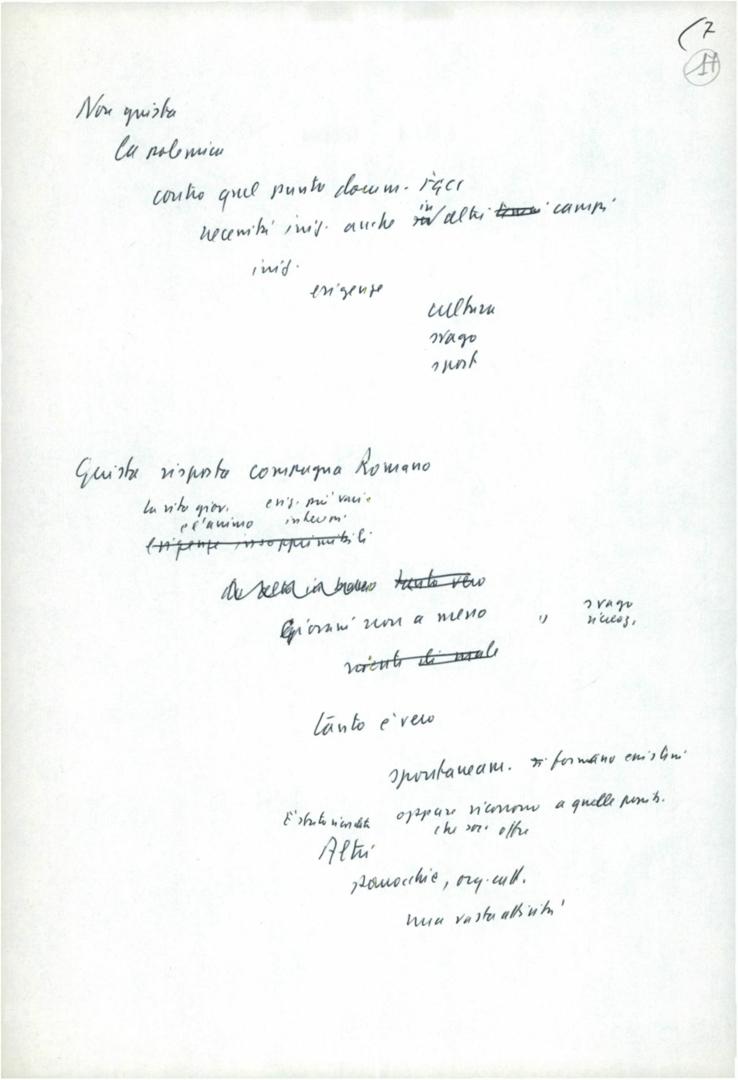 7
11
Non giusta
la polemica
contro quel punto docum. FGCI
necessità iniz. anche in altri campi
iniz.
esigenze
cultura
svago
sport
Giusta risposta compagna Romano
La vita giov. esig. più varie
e l'animo
esigenze insopprimibili
tanto vero
giovani non a meno
svago
niente di male
tanto è vero
spontaneam. si formano
È stato ricordato oppure ricorrono a quelle possib.
che soc. offre
Altri
parrocchie, org. catt.
una vasta attività